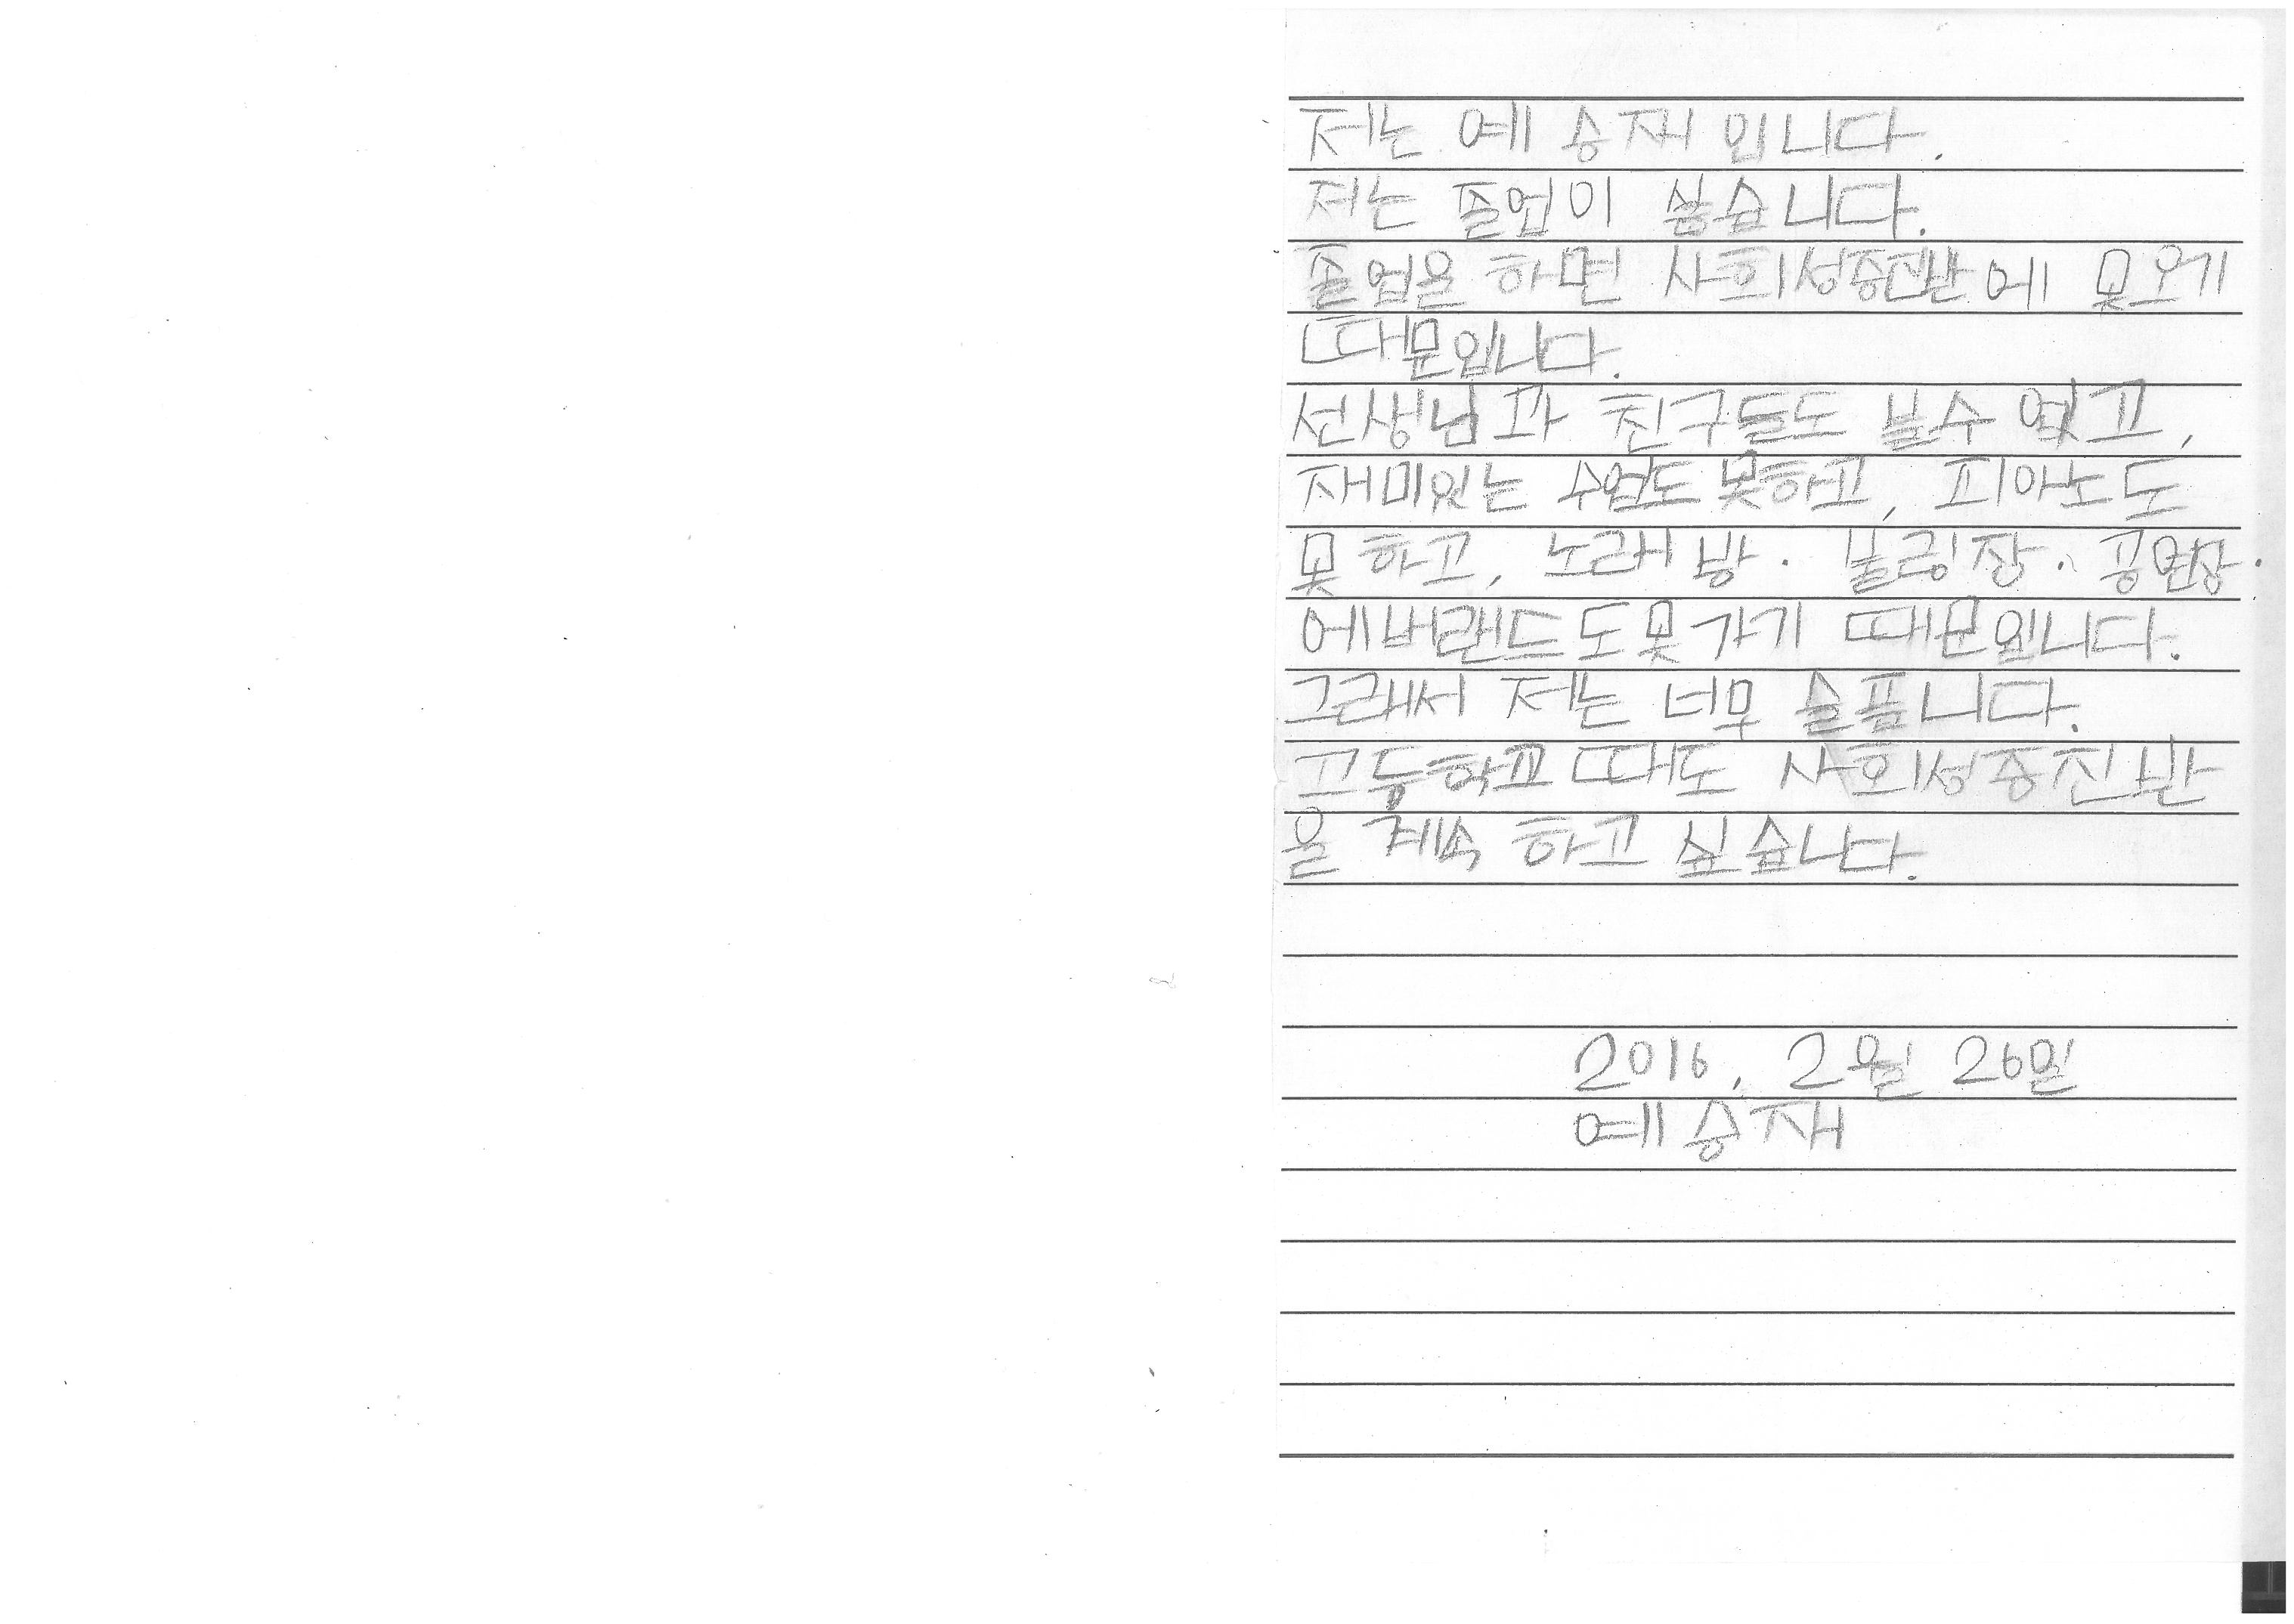 저는 예승재 입니다.
저는 졸업이 싫습니다.
졸업을 하면 사회성증진반에 못오기
때문입니다.
선생님과 친구들도 볼수 없고,
재미있는 수업도 못하고, 피아노도
못하고, 노래방· 볼링장· 공연장·
에버랜드도 못가기 때문입니다.
그래서 저는 너무 슬픕니다.
고등학교 때도 사회성증진반
을 계속 하고 싶습니다.
2016. 2월 26일
예승재